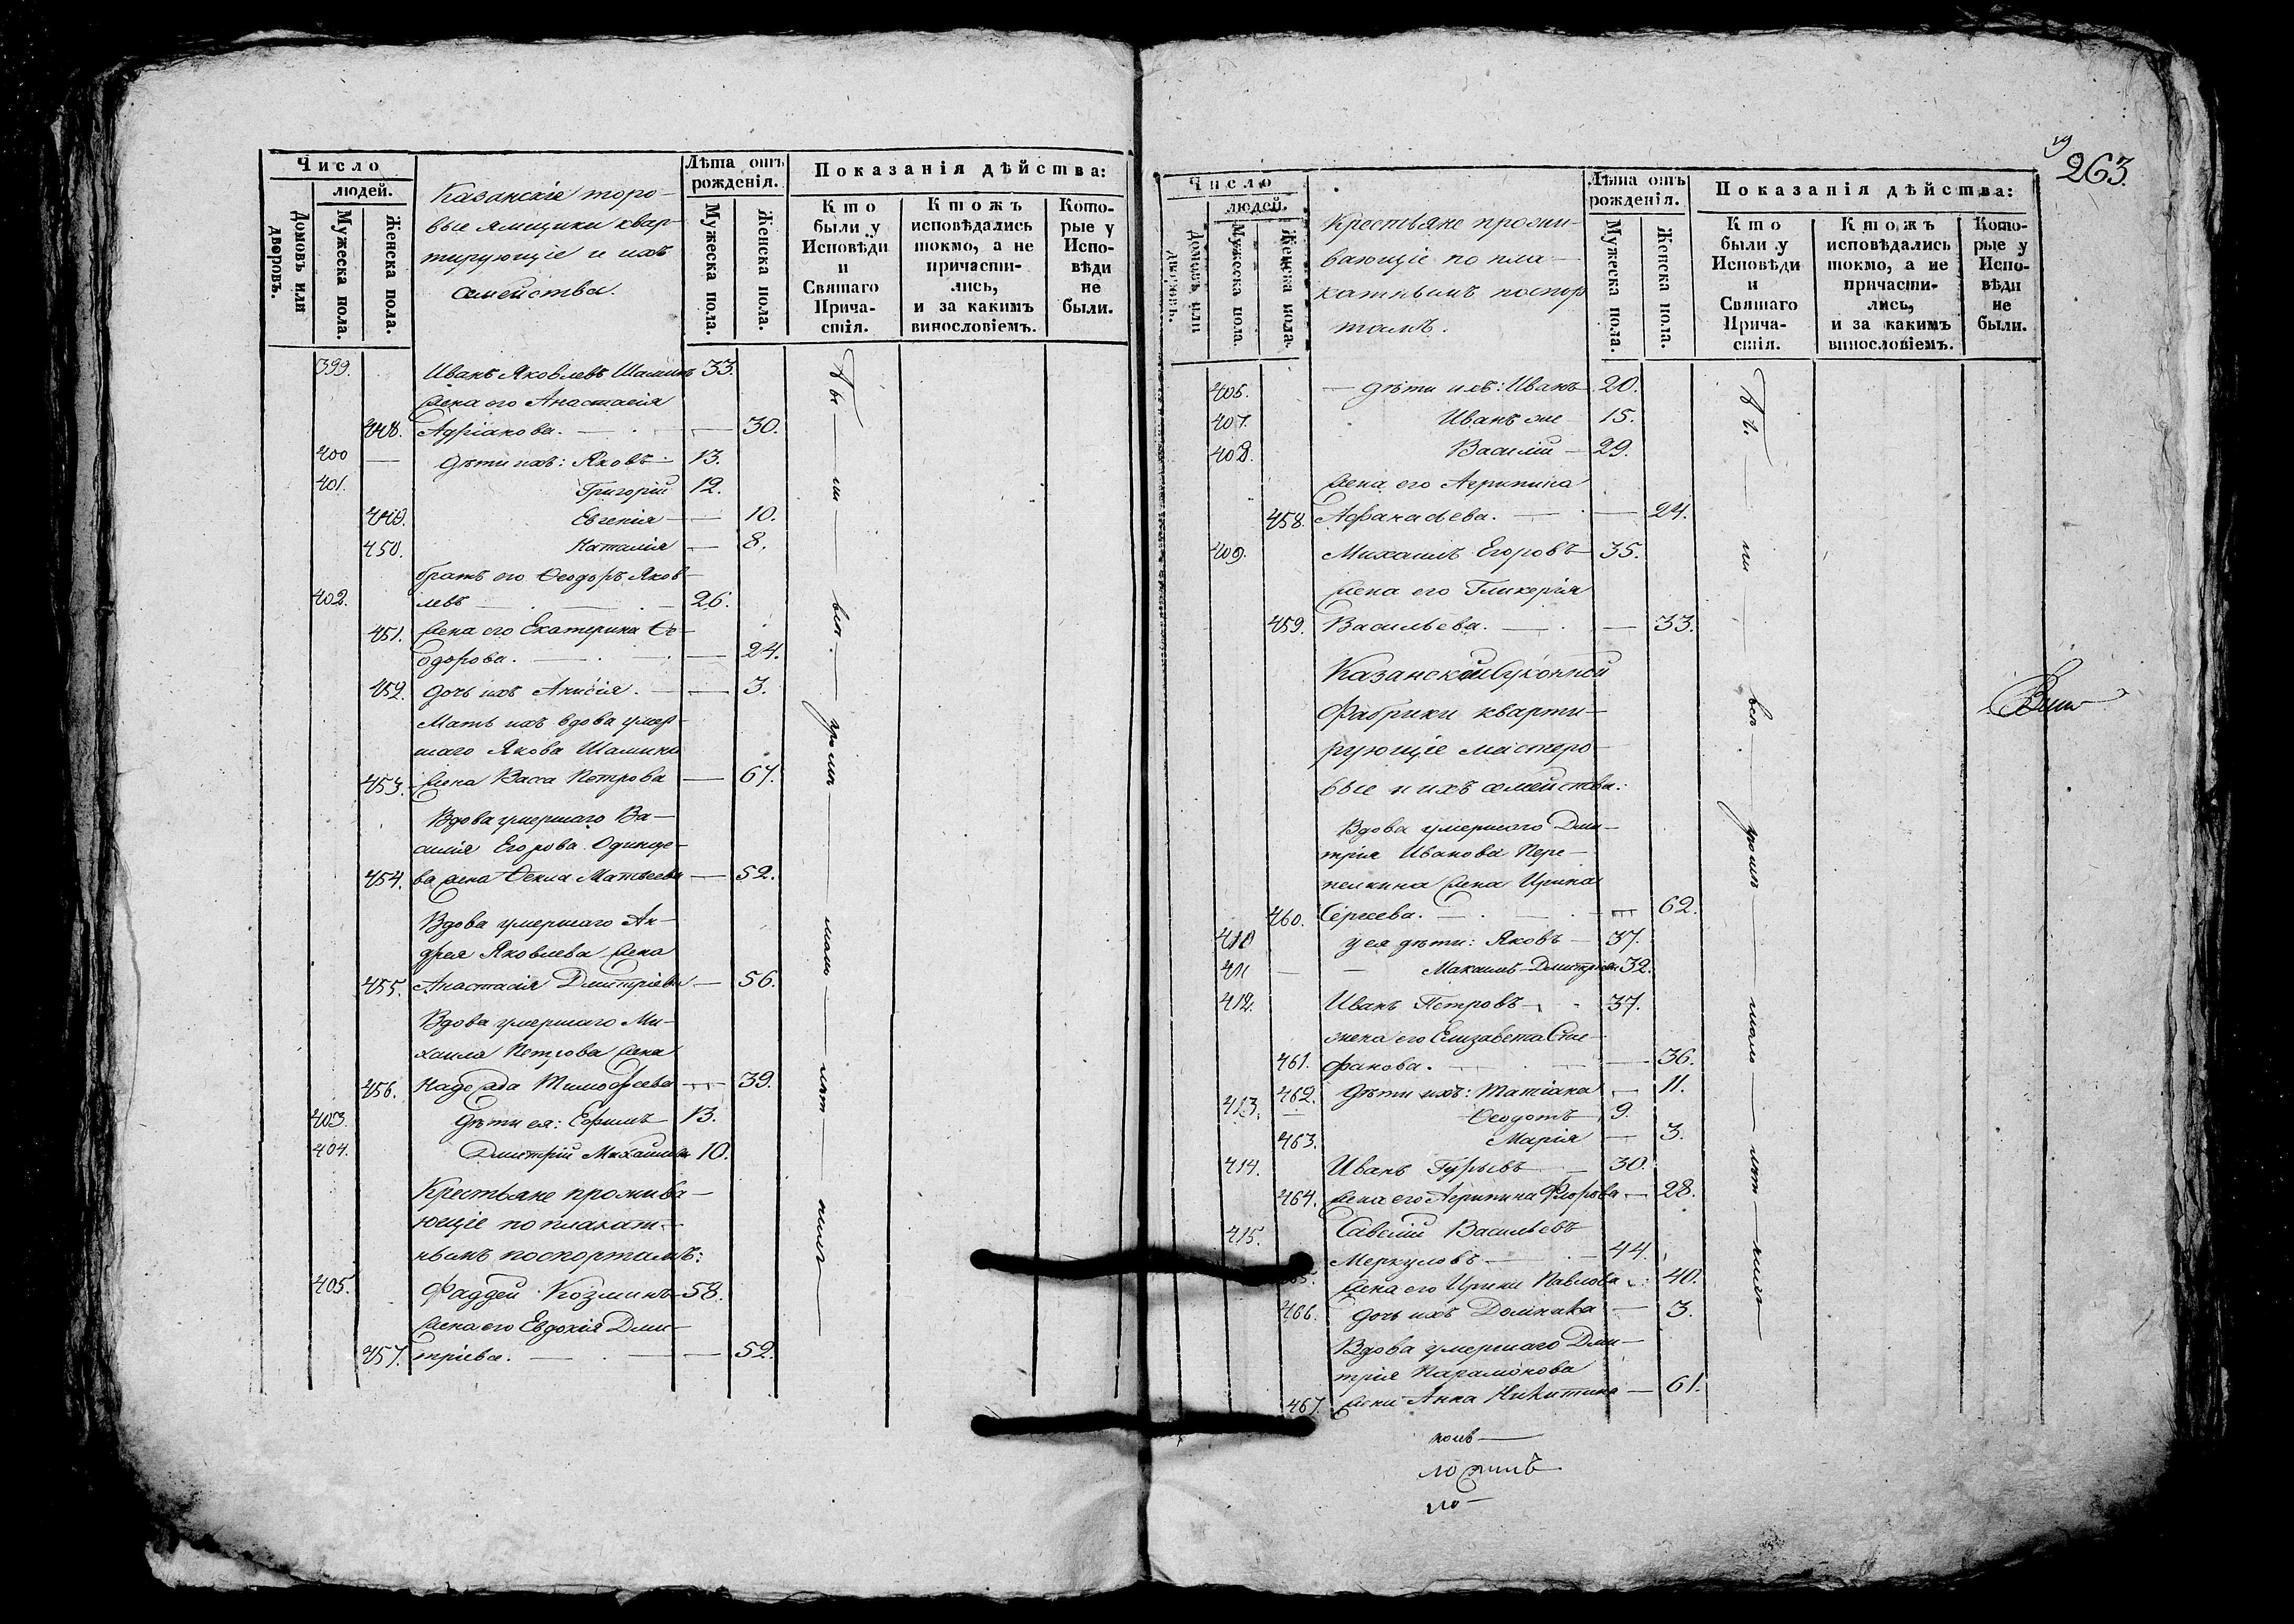 Число
людей.
Домовъ или дворовъ.
Мужеска пола.
Женска пола.
Казанскіе торо-
вые ямщики квар-
тирующіе и ихъ
семейства.
Лѣта отъ
рожденія.
Мужеска пола.
Женска пола.
Показанія дѣйства:
Кто
были у
Исповѣди
и
Святаго
Прича-
стія.
Ктожъ
исповѣдались
токмо, а не
причасти-
лись,
и за какимъ
винословіемъ.
Кото-
рые у
Испо-
вѣди
не
были.
399. Иванъ Яковлевъ Шаминъ 33.
жена его Анастасія
448. Адріанова. — 30.
400 — дѣти ихъ: Яковъ 13.
401. Григорій 12.
449. Евгенія — 10.
450. Наталія — 8.
братъ его Ѳеодоръ Яков-
402. левъ — 26.
451. жена его Екатерина Ѳе-
одорова. — 24.
452. дочь ихъ Анисія. — 3.
Мать ихъ вдова умер-
шаго Якова Шамина
453. жена Васса Петрова — 67.
Вдова умершаго Ва-
силія Егорова Одинце-
454. ва жена Ѳекла Матвеева — 52.
Вдова умершаго Ан-
дрея Яковлева жена
455. Анастасія Дмитріева — 56.
Вдова умершаго Ми-
хаила Петрова жена
456. Надежда Тимофеева — 39.
403. дѣти ея: Ефимъ 13.
404. Дмитрій Михайловы 10.
Крестьяне прожива-
ющіе по плакат-
нымъ поспортамъ:
405. Фаддей Козминъ 58.
жена его Евдокія Дми-
457. тріева. — 52.
19
263.
Число
людей.
Домовъ или дворовъ.
Мужеска пола.
Женска пола.
Крестьяне прожи-
вающіе по пла-
катнымъ поспор
тамъ.
Лѣта отъ
рожденія.
Мужеска пола.
Женска пола.
Показанія дѣйства:
Кто
были у
Исповѣди
и
Святаго
Прича-
стія.
Ктожъ
исповѣдались
токмо, а не
причасти-
лись,
и за какимъ
винословіемъ.
Кото-
рые у
Испо-
вѣди
не
были.
406. — дѣти ихъ: Иванъ 20.
407. Иванъ же 15.
408. Василій — 29.
жена его Агрипина
458. Афанасьева. — 24.
409. Михаилъ Егоровъ 35.
жена его Гликерія
459. Васильева. — 33.
Казанской Суконной
Фабрики кварти-
рующіе мастеро-
вые и ихъ семейства:
Вдова умершаго Дми-
трія Иванова Пере-
пелкина жена Ирина
460. Сергеева. — 62.
410 у ея дѣти: Яковъ — 37.
411 — Максимъ Дмитріевы 32.
412. Иванъ Петровъ — 37.
жена его Елизавета Сте-
461. фанова. — 36.
462. дѣти ихъ: Татіана — 11.
413. Ѳеодотъ 9.
463. Марія — 3.
414. Иванъ Гурьевъ — 30.
464. жена его Агрипина Флорова — 28.
415. Савелій Васильевъ
Меркуловъ — 44.
жена его Ирина Павлова 40.
466. дочь ихъ Домника — 3.
Вдова умершаго Дми-
трія Парамонова
467. жена Анна Никитина — 61.